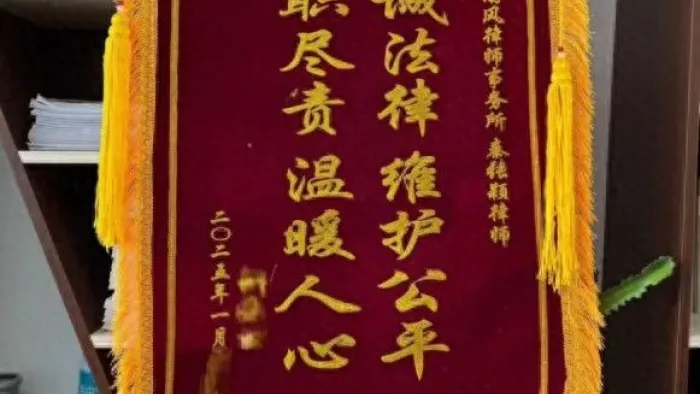 风律师事务所 秦颖律师
诚法律 维护公平
职尽责 温暖人心
二〇二五年一月